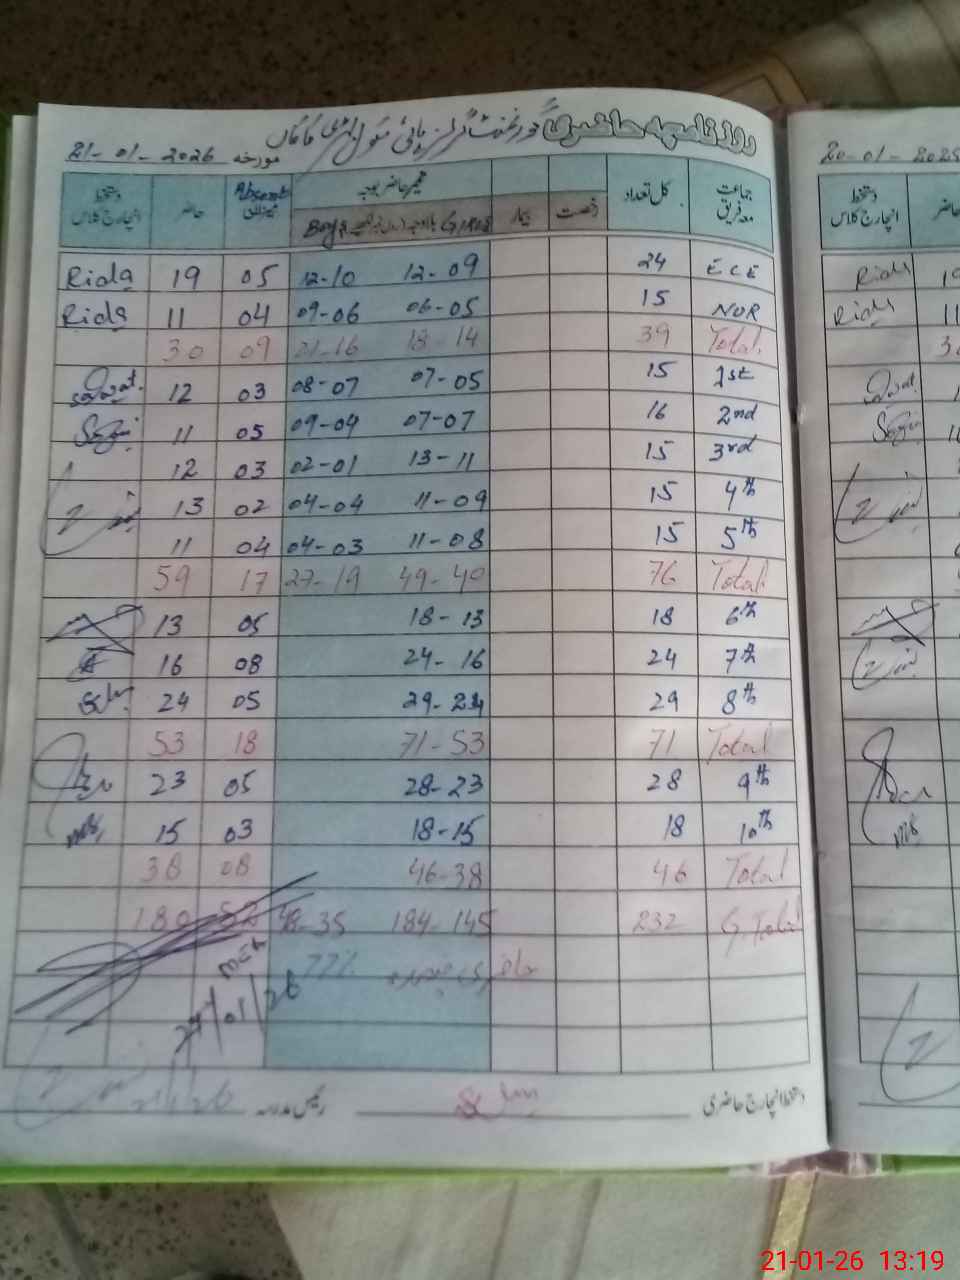 روزنامچہ حاضری گورنمنٹ گرلز ہائی سکول
مورخہ 21-01-2026
جماعت معہ فریق کل تعداد رخصت بیمار غیر حاضر بوجہ Absent حاضر دستخط انچارج کلاس
Girls Boys
ECE 24 12-09 12-10 05 19 Rida
NUR 15 06-05 09-06 04 11 Rida
Total 39 18-14 21-16 09 30
1st 15 07-05 08-07 03 12
2nd 16 07-07 09-04 05 11
3rd 15 13-11 02-01 03 12
4th 15 11-09 04-04 02 13
5th 15 11-08 04-03 04 11
Total 76 49-40 27-19 17 59
6th 18 18-13 05 13
7th 24 24-16 08 16
8th 29 29-24 05 24
Total 71 71-53 18 53
9th 28 28-23 05 23
10th 18 18-15 03 15
Total 46 46-38 08 38
G.Total 232 184-145 48-35 52 180
حاضری 77%
دستخط انچارج حاضری رئیس مدرسہ
20-01-2025
دستخط انچارج کلاس
حاضر
Rida
Rida
21-01-26 13:19